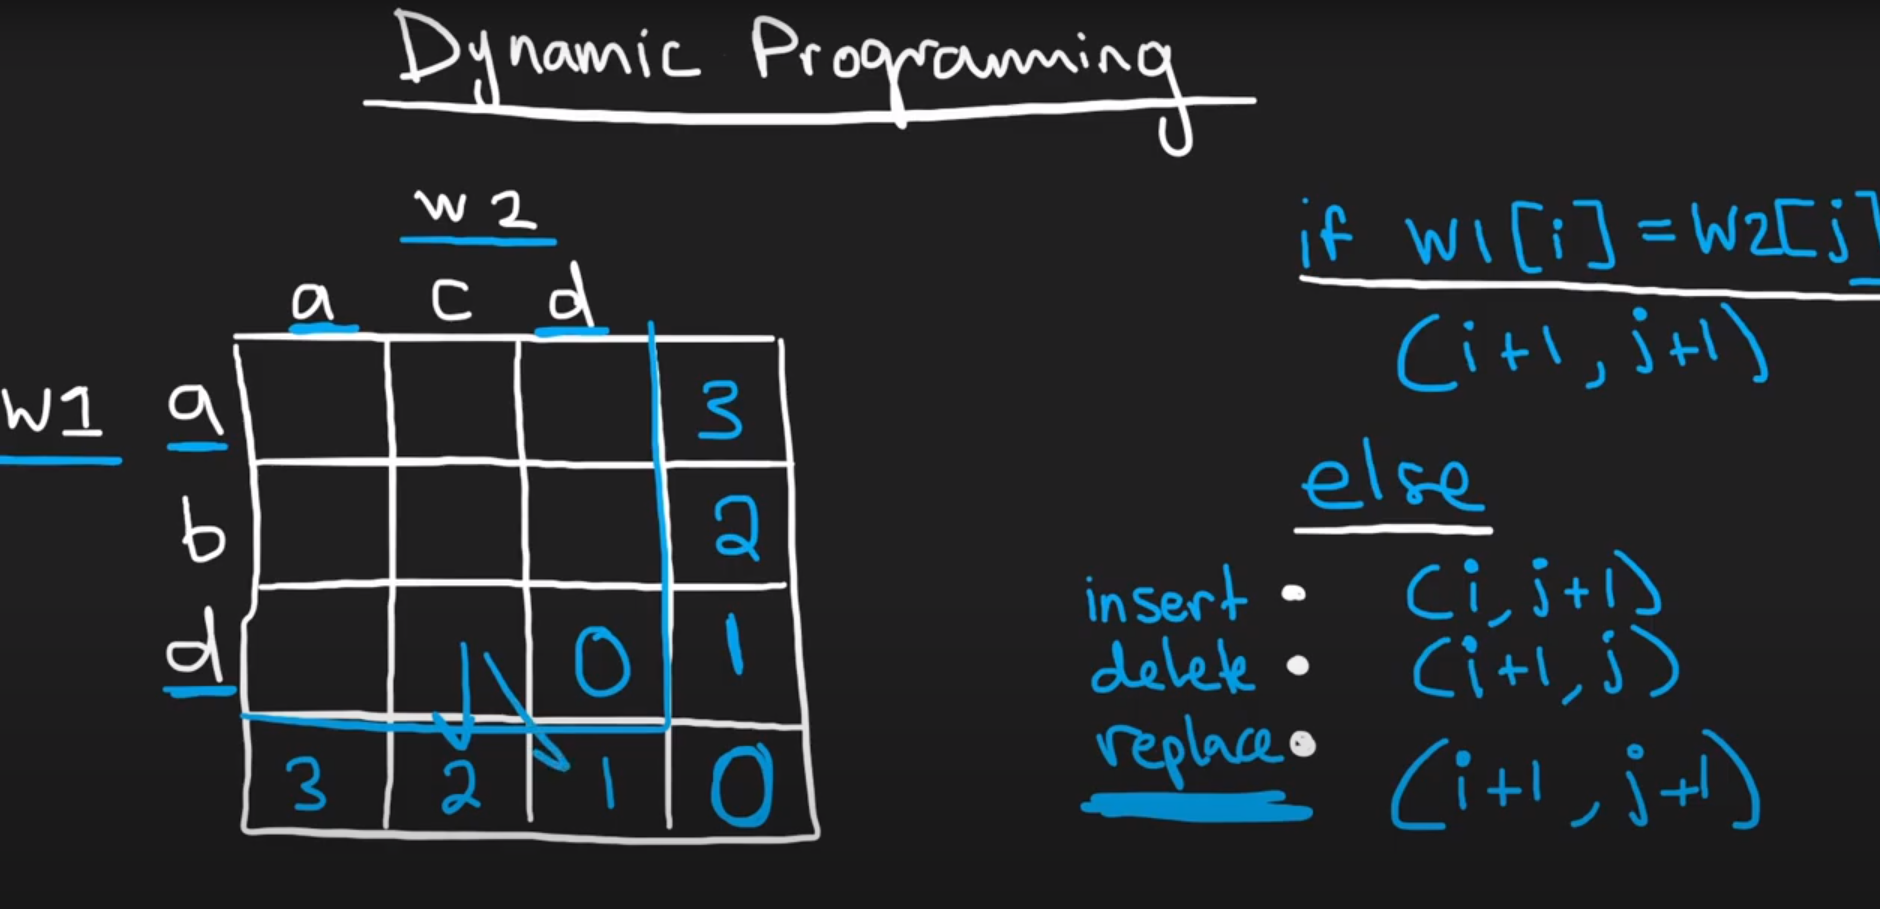 Dynamic Programming
w2
a c d
W1 a 3
b 2
d 0 1
3 2 1 0
if W1[i]=W2[j]
(i+1, j+1)
else
insert • (i, j+1)
delete • (i+1, j)
replace • (i+1, j+1)